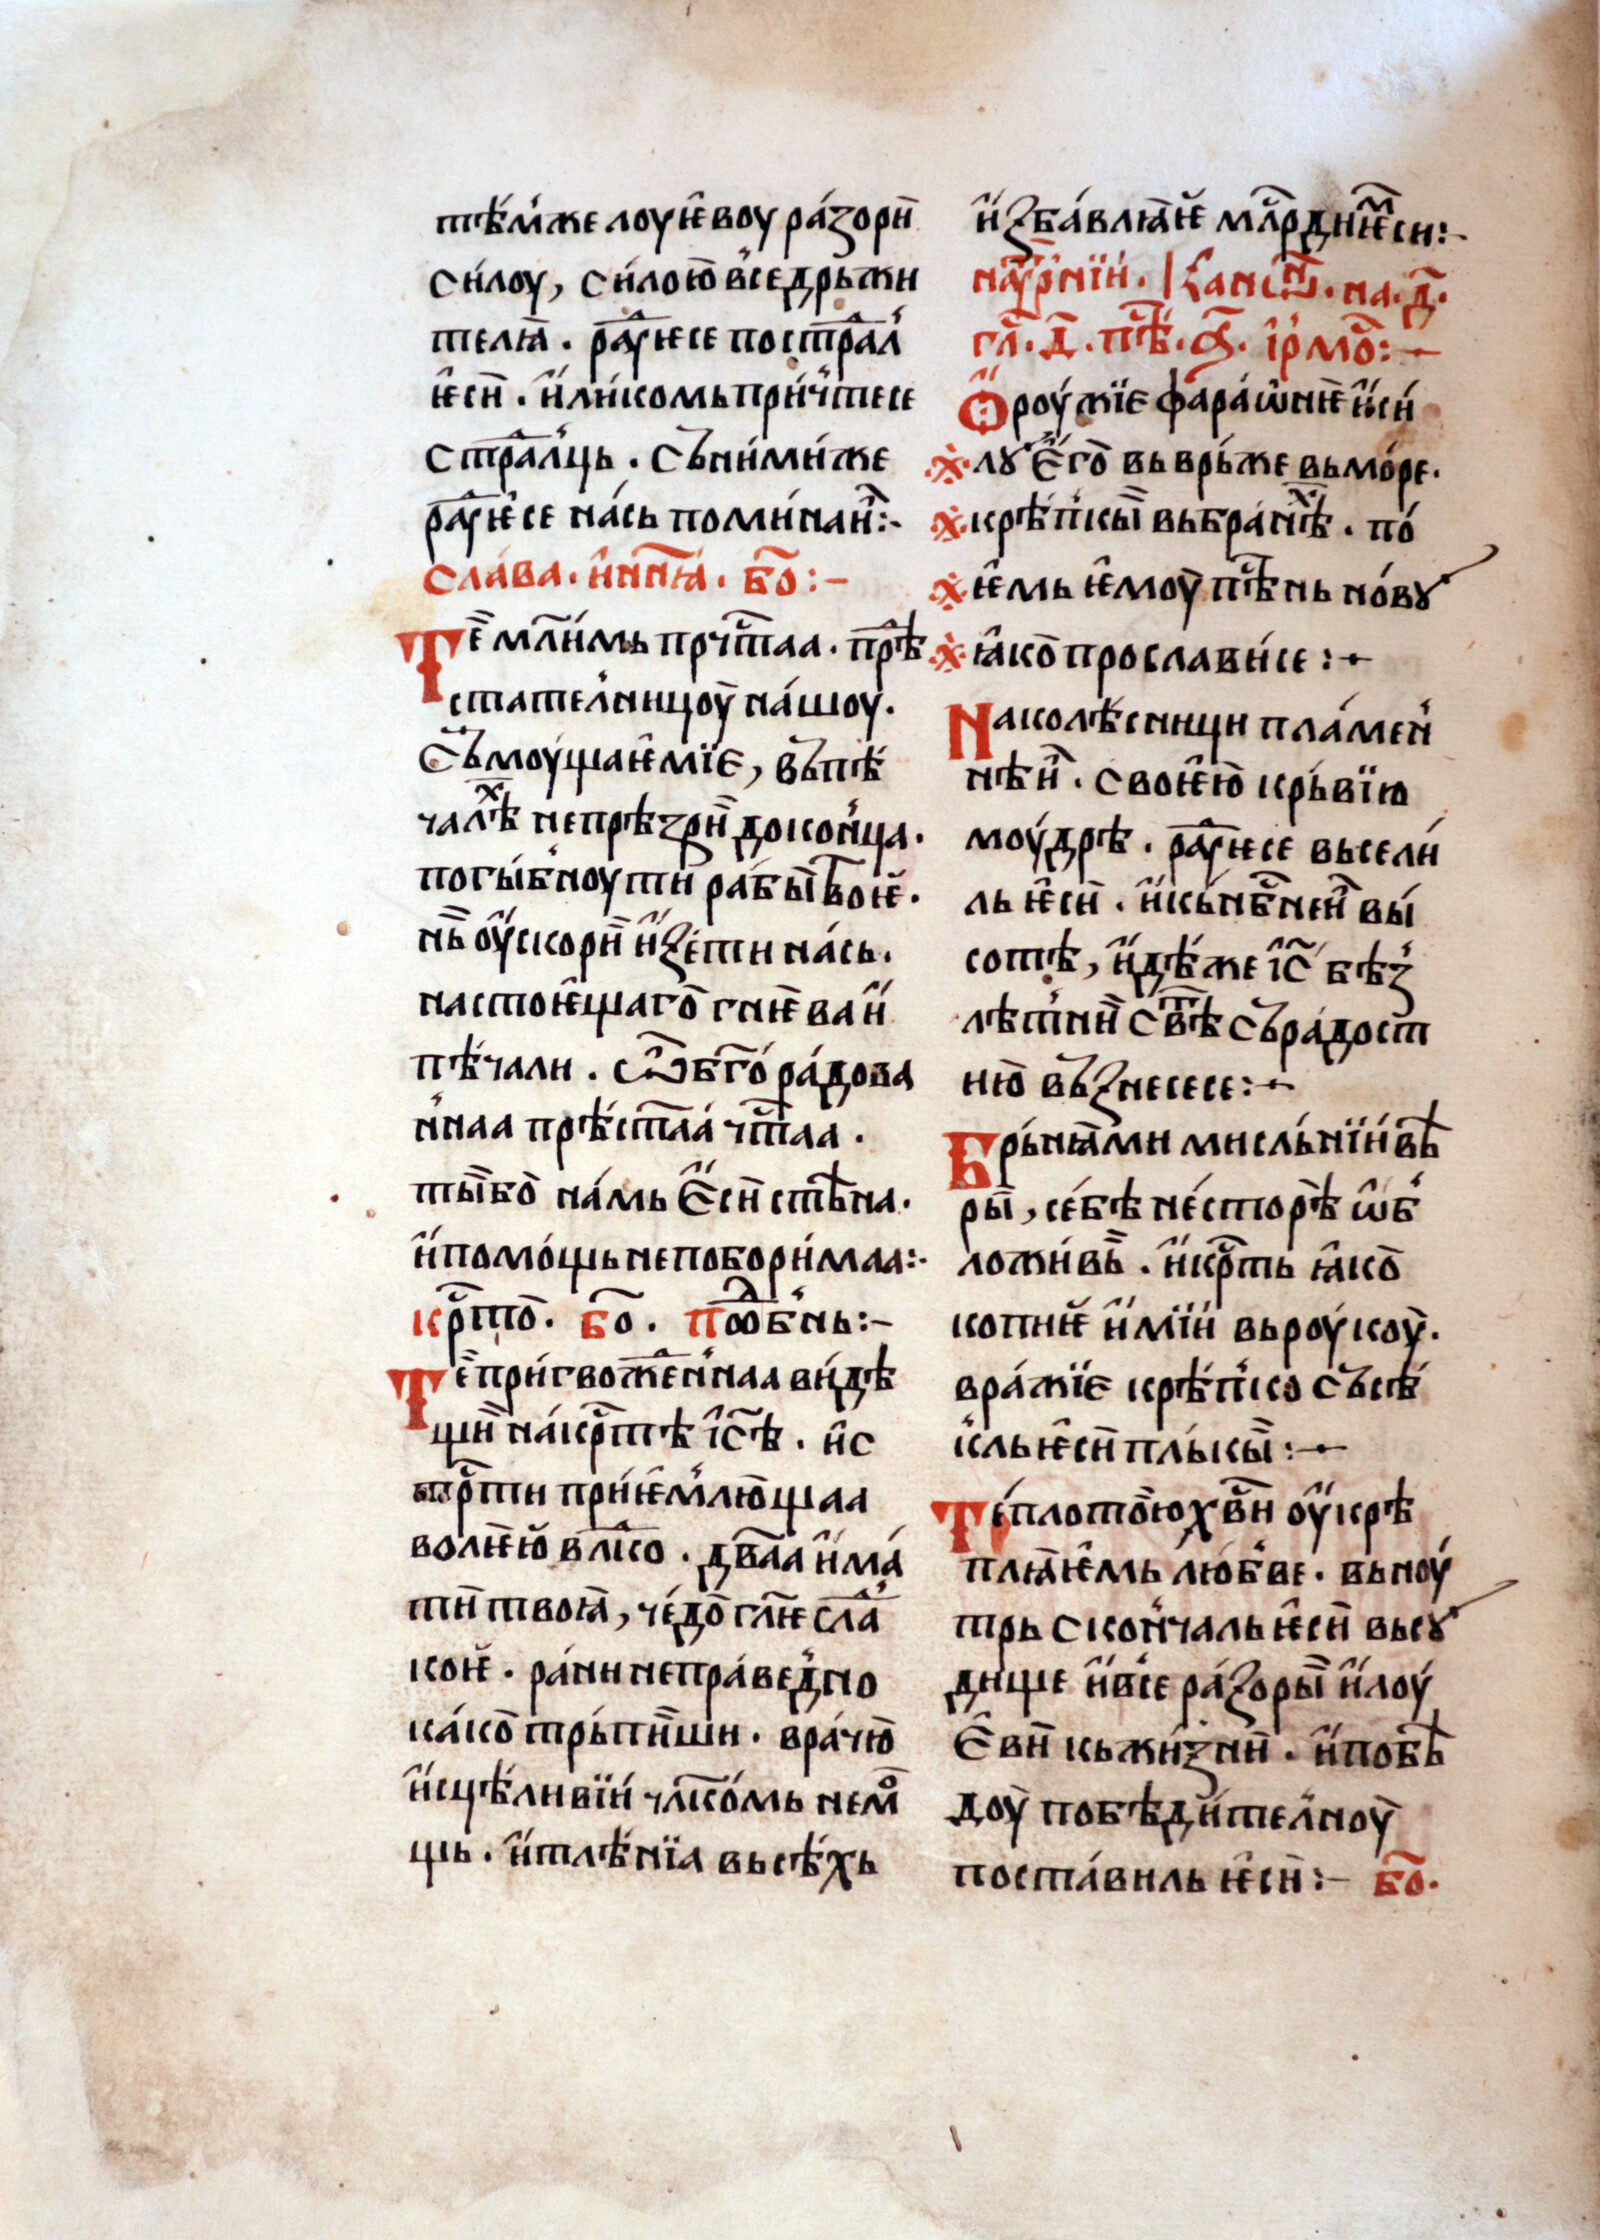 тѣ́мже лоукꙗвоу ра́зорꙵи
си́лоу, си́лою̑ все́дрьжи
телꙗ̀. раⷣу́ѥсе пострⷣал
ѥ̑сѝ. и҆ли́комь при́чтесе
стрⷣалць. съни́ми́же
раⷣу́ѥсе на́сь помина́и:-
сла́ва. и҆нн҃ꙗ. бо҃:-
Те̏ мл҃и́мь прчⷭ҇таа. прⷣѣ
стателницоу̀ на́шоу.
Съмоу́щаѥ̑мїе, въпѣ́
чалѣⷯ непрѣзрѝ доко́нца.
погы́бноути рабы̏ твоѥ̀.
нь̏ оу҆скорѝ и҆зе́ти на́сь.
настоѥ́щаго̀ гнѥ́ва и҆
пѣ́чали. ѡ҃ бг҃о ра́дова
ннаа прѣ́ст҃аа́ чⷭ҇таа́.
ты́бо̀ на́мь Е҆сѝ стѣ́на.
и҆помо́щь непобори́маа:-
крⷭ҇то. бо҃. поⷣбнь:-
Те̏ при́гвожⷣенная ви́дѣ
щѝ на́крⷭ҇тѣ і҆с҃ѣ. и҆с
стрⷭ҇ти при́ѥ̑млю́щаа
волѥ́ю влⷣко. дв҃аа и҆ма́
тѝ твоꙗ̀, че́до̀ гл҃ѥ слⷣа
коѥ̀. ра́ни непра́ведно
ка́ко̀ трьпи́ши. вра́чю̀
и҆сцѣ́ливїи́ чл҃ко́мь немо
щь. и҆тлѣ́нїа вьсѣ́хь
и҆зба́влꙗѥ̀ млⷭ҇рдиѥⷨ си:-
наоу҆рⷩ҇їи. Канѡⷩ. на. д҃.
гл҃. д҃. пѣⷭ. а҃. і҆рмоⷭ:-
Ѻ҆роу́жїе фараѡ́нѥ и҆си́
лꙋ Е҆го̀ вьврь́же вьмо́ре.
крѣ́пкы̏ вьбра́нѣⷯ. по́
ѥ̑мь ѥ̑моу̀ пѣⷭ҇нь но́вꙋ
ꙗ҆ко̀ прослави́се:-
Наколѣсници пла́мен
нѣи. своѥ́ю крь́вїю
моу́дрѣ. раⷣу́ѥсе вьсели́
ль ѥ̑сѝ. и҆кь нбⷭ҇неи вы́
сотѣ, и҆дѣ́же і҆с҃ бѣз
лѣтнѝ свⷮѣ сьра́дост
ию̀ възнесесе:-
Брь́нꙗми мисль́нїи вѣ
ры̏, се́бѣ не́сторѣ ѡ҆б
ложи́вь̏. и҆крⷭ҇ть ꙗ҆ко̀
копиѥ̀ и҆мїи́ вьроу́коу̀.
вра́жїе крѣ́пко съсѣ́
кль ѥ̑сѝ пль́кы̏:-
Те́плото́ю хв҃и оу҆крѣ
плꙗ́ѥ̑мь лю́бве. вьноу́
трь сконча́ль ѥ̑сѝ вьсꙋ
дище и҆все́ ра́зоры̏ и҆лоу́
Е҆вѝ кьжи́знѝ. и҆побѣ́
доу̀ побѣди́телноу̀
поста́виль ѥ̑сѝ:- бо҃.